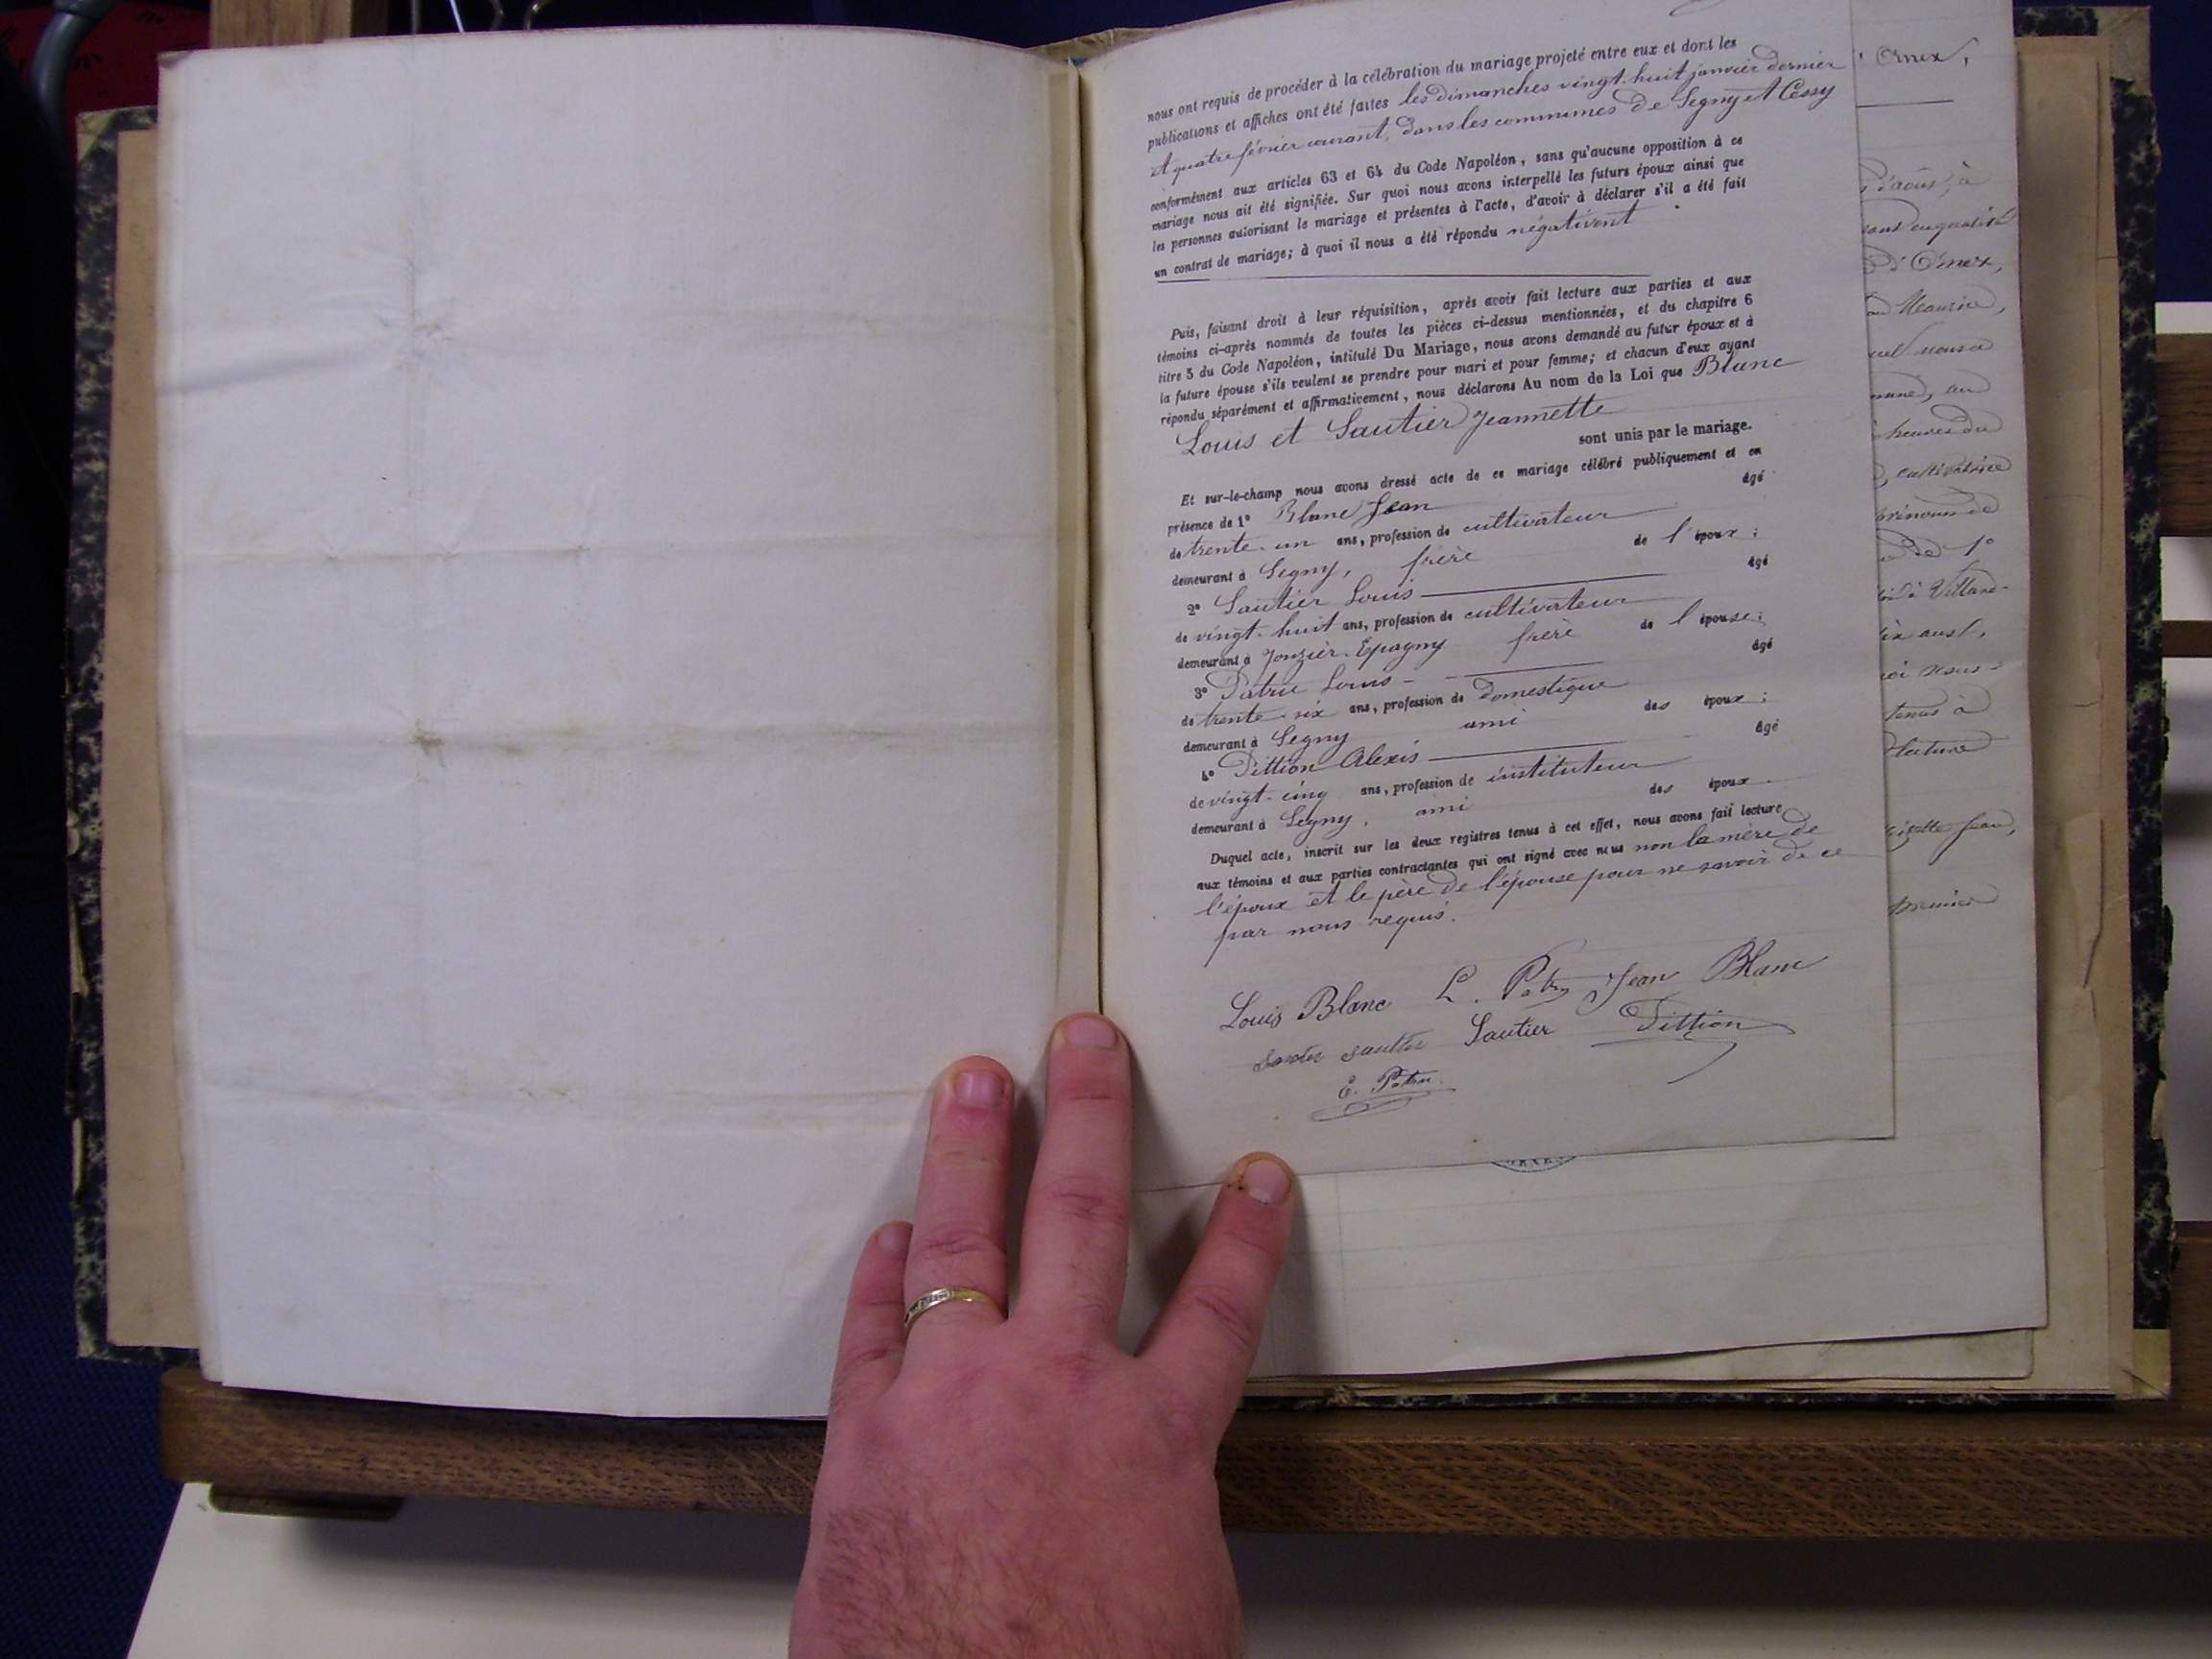 nous ont requis de procéder à la célébration du mariage projeté entre eux et dont les
publications et affiches ont été faites les dimanches vingt-huit janvier dernier
et quatre février courant, dans les communes de Segny et Cessy
conformément aux articles 63 et 64 du Code Napoléon, sans qu'aucune opposition à ce
mariage nous ait été signifiée. Sur quoi nous avons interpellé les futurs époux ainsi que
les personnes autorisant le mariage et présentes à l'acte, d'avoir à déclarer s'il a été fait
un contrat de mariage; à quoi il nous a été répondu négativent
Puis, faisant droit à leur réquisition, après avoir fait lecture aux parties et aux
témoins ci-après nommés de toutes les pièces ci-dessus mentionnées, et du chapitre 6
titre 5 du Code Napoléon, intitulé Du Mariage, nous avons demandé au futur époux et à
la future épouse s'ils veulent se prendre pour mari et pour femme; et chacun d'eux ayant
répondu séparément et affirmativement, nous déclarons Au nom de la Loi que Blanc
Louis et Sautier Jeannette
sont unis par le mariage.
Et sur-le-champ nous avons dressé acte de ce mariage célébré publiquement et en
présence de 1° Blanc Jean âgé
de trente-un ans, profession de cultivateur
demeurant à Segny, frère de l'époux;
2° Sautier Louis âgé
de vingt-huit ans, profession de cultivateur
demeurant à Jonzier-Epagny frère de l'épouse;
3° Patru Louis âgé
de trente-six ans, profession de domestique
demeurant à Segny ami des époux;
4° Pittion Alexis âgé
de vingt-cinq ans, profession de instituteur
demeurant à Segny, ami des époux.
Duquel acte, inscrit sur les deux registres tenus à cet effet, nous avons fait lecture
aux témoins et aux parties contractantes qui ont signé avec nous non la mère de
l'époux et le père de l'épouse pour ne savoir de ce
par nous requis.
Louis Blanc L. Patru Jean Blanc
Sautier Sautier Pittion
E. Patru
Ornex,
d'août, à
d'Ornex,
Maurice,
heures du
cultivatrice
prénoms de
de 1°
à Villard-
tenus à
lecture
Jean,